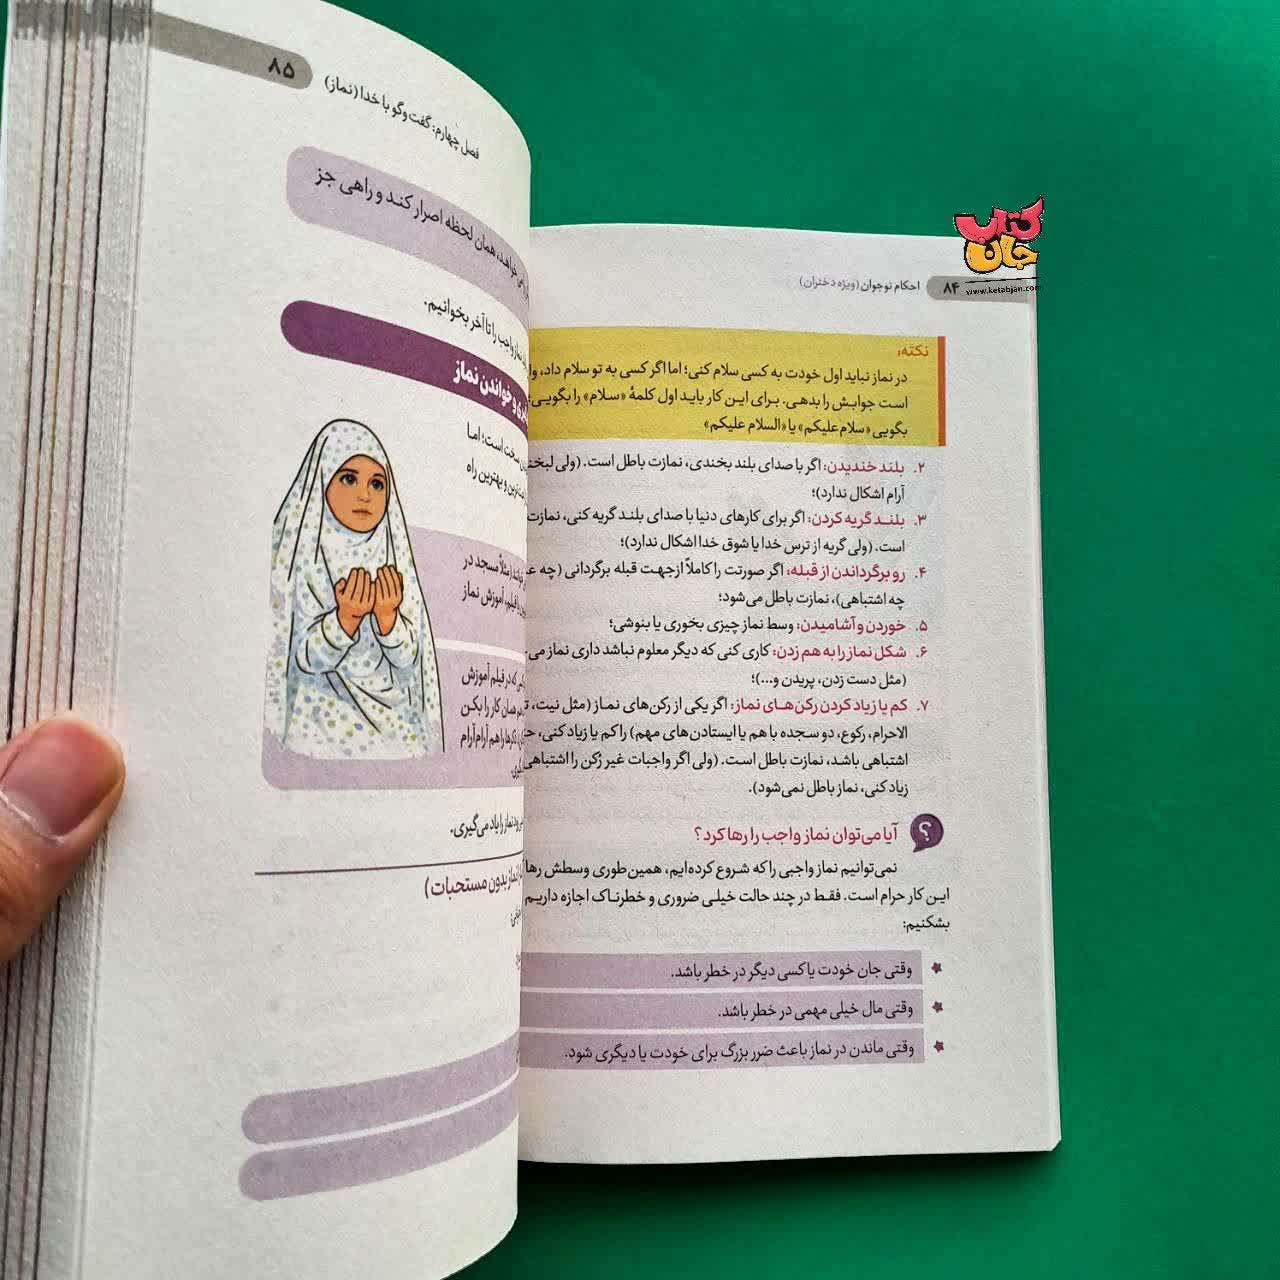 کتاب
جان
www.ketabjan.com
۸۴ احکام نوجوان (ویژه دختران)
نکته:
در نماز نباید اول خودت به کسی سلام کنی؛ اما اگر کسی به تو سلام داد،
است جوابش را بدهی. برای این کار باید اول کلمهٔ «سلام» را بگویی؛
بگویی «سلام علیکم» یا «السلام علیکم»
۲. بلند خندیدن: اگر با صدای بلند بخندی، نمازت باطل است. (ولی
آرام اشکال ندارد)؛
۳. بلند گریه کردن: اگر برای کارهای دنیا با صدای بلند گریه کنی، نمازت
است. (ولی گریه از ترس خدا یا شوق خدا اشکال ندارد)؛
۴. رو برگرداندن از قبله: اگر صورتت را کاملاً از جهت قبله برگردانی (چه
چه اشتباهی)، نمازت باطل می‌شود؛
۵. خوردن و آشامیدن: وسط نماز چیزی بخوری یا بنوشی؛
۶. شکل نماز را به هم زدن: کاری کنی که دیگر معلوم نباشد داری نماز می‌
(مثل دست زدن، پریدن و...)؛
۷. کم یا زیاد کردن رکن‌های نماز: اگر یکی از رکن‌های نماز (مثل نیت،
الاحرام، رکوع، دو سجده با هم یا ایستادن‌های مهم) را کم یا زیاد کنی،
اشتباهی باشد، نمازت باطل است. (ولی اگر واجبات غیر رُکن را اشتباهی
زیاد کنی، نماز باطل نمی‌شود).
؟ آیا می‌توان نماز واجب را رها کرد؟
نمی‌توانیم نماز واجبی را که شروع کرده‌ایم، همین‌طوری وسطش
این کار حرام است. فقط در چند حالت خیلی ضروری و خطرناک اجازه داریم
بشکنیم:
وقتی جان خودت یا کسی دیگر در خطر باشد.
وقتی مال خیلی مهمی در خطر باشد.
وقتی ماندن در نماز باعث ضرر بزرگ برای خودت یا دیگری شود.
فصل چهارم: گفت‌وگو با خدا (نماز) ۸۵
همان لحظه اصرار کند و راهی جز
نماز واجب را تا آخر بخوانیم.
و خواندن نماز
سخت است؛ اما
و بهترین راه
(مثلاً مسجد در
فیلم، آموزش نماز
که در فیلم آموزش
همان کار را بکن
را هم آرام آرام
نماز را یاد می‌گیری.
نماز بدون مستحبات)